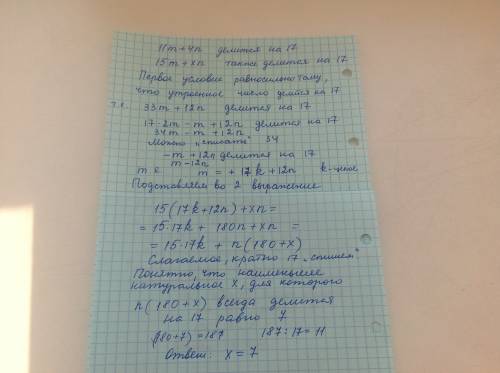 11m+4n делится на 17
15m+xn также делится на 17
Первое условие равносильно тому,
что утроенное число делится на 17
т.е. 33m+12n делится на 17
17·2m-m+12n делится на 17
34m-m+12n
Можно "списать" 34
-m+12n делится на 17
m-12n
т.е. m=+17k+12n k-целое
Подставляем во 2 выражение
15(17k+12n)+xn=
=15·17k+180n+xn=
=15·17k+n(180+x)
Слагаемое, кратно 17 "спишем"
Понятно, что наименьшее
натуральное x, для которого
n(180+x) всегда делится
на 17 равно 7
(180+7)=187 187:17=11
Ответ: x=7